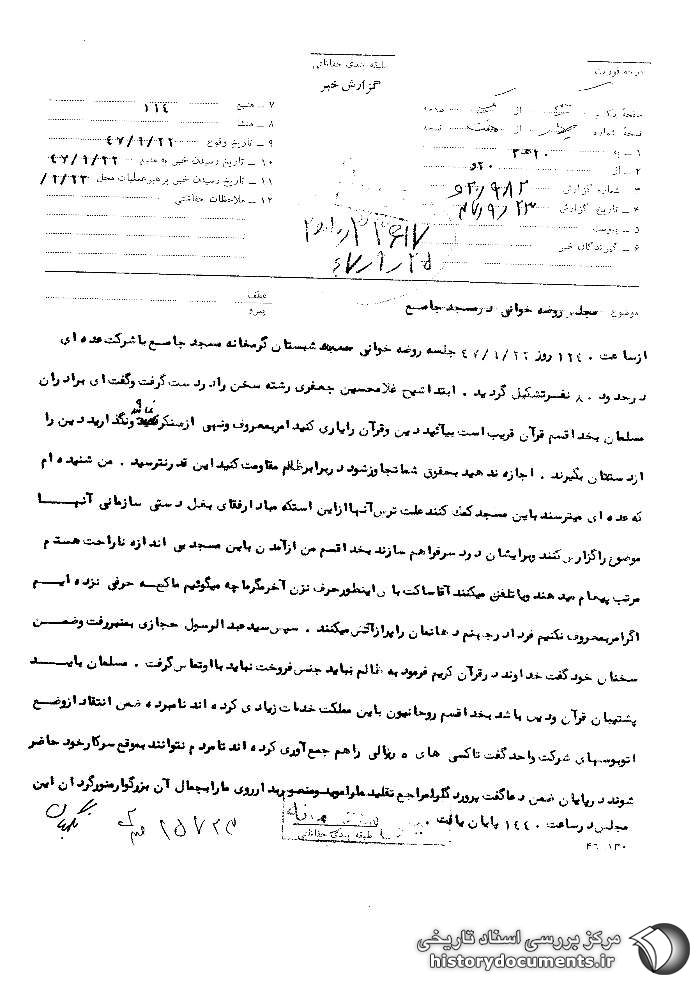 طبقه بندی حفاظتی
گزارش خبر
درجه فوریت
صفحه یک از یک صفحه
نسخه شماره از هفت نسخه
۱ - به ۳۲۰
۲ - از ۲۰ه
۳ - شماره گزارش
۴ - تاریخ گزارش ۴۷/۹/۲۳
۵ - پیوست
۶ - گیرندگان خبر
۷ - منبع ۱۱۴
۸ - منشاء
۹ - تاریخ وقوع ۴۷/۹/۲۲
۱۰ - تاریخ رسیدن خبر به منبع ۴۷/۹/۲۲
۱۱ - تاریخ رسیدن خبر برهبر عملیات محل
۱۲ - ملاحظات حفاظتی
۴۷/۹/۲۵
موضوع : مجلس روضه خوانی در مسجد جامع
عطف
پیرو
ازساعت ۱۲۴۰ روز ۴۷/۹/۲۲ جلسه روضه خوانی شبستان گرمخانه مسجد جامع با شرکت عده ای
درحدود ۸۰ نفر تشکیل گردید . ابتدا شیخ غلامحسین جعفری رشته سخن را در دست گرفت وگفت ای برادران
مسلمان بخدا قسم قرآن غریب است بیائید دین وقرآن رایاری کنید امربمعروف ونهی ازمنکر نمائید ونگذارید دین را
ازدستتان بگیرند . اجازه ندهید بحقوق شما تجاوزشود دربرابرظالم مقاومت کنید این قدر نترسید . من شنیده ام
که عده ای میترسند باین مسجد کمک کنند علت ترس آنها ازاین استکه مبادا رفقای بغل دستی سازمانی آنها
موضوع راگزارش کنند وبرایشان دردسر فراهم سازند بخدا قسم من ازآمدن باین مسجد بی اندازه ناراحت هستم
مرتب پیغام میدهند ویاتلفن میکنند آقا ساکت باش اینطورحرف نزن آخرمگرما چه میگوئیم ماکه حرفی نزده ایم
اگرامربمعروف نکنیم فردا درجهنم دهانمان را پرازآتش میکنند . سپس سید عبدالرسول حجازی بمنبررفت وضمن
سخنان خود گفت خداوند درقرآن کریم فرمود به ظالم نباید جنس فروخت نباید با او تماس گرفت . مسلمان باید
پشتیبان قرآن ودین باشد بخدا قسم روحانیون باین مملکت خدمات زیادی کرده اند نامبرده ضمن انتقاد ازوضع
اتوبوسهای شرکت واحد گفت تاکسی های ۵ ریالی راهم جمع آوری کرده اند تا مردم نتوانند بموقع سرکارخود حاضر
شوند درپایان ضمن دعا گفت پروردگارا مراجع تقلید مارا موید ومنصور بدار روی مارا بجمال آن بزرگوار منورگردان این
مجلس درساعت ۱۴۴۰ پایان یافت .
طبقه بندی حفاظتی
۴۶-۱۲۰
مرکز بررسی اسناد تاریخی
historydocuments.ir